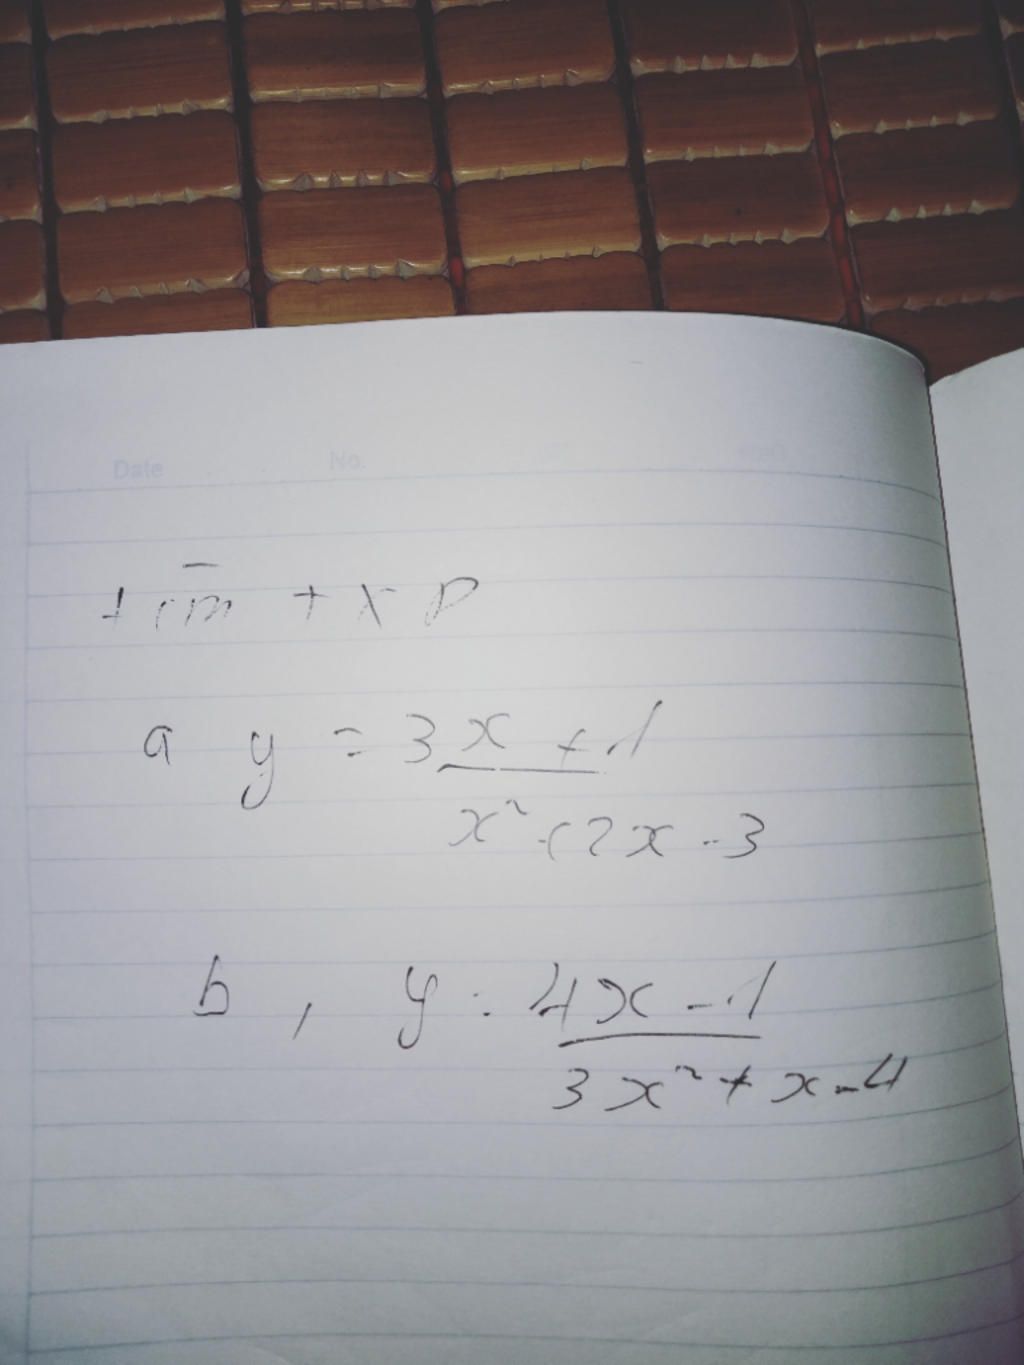 Date No.
tìm TXĐ
a y = 3x + 1
x² + 2x - 3
b, y = 4x - 1
3x² + x - 4